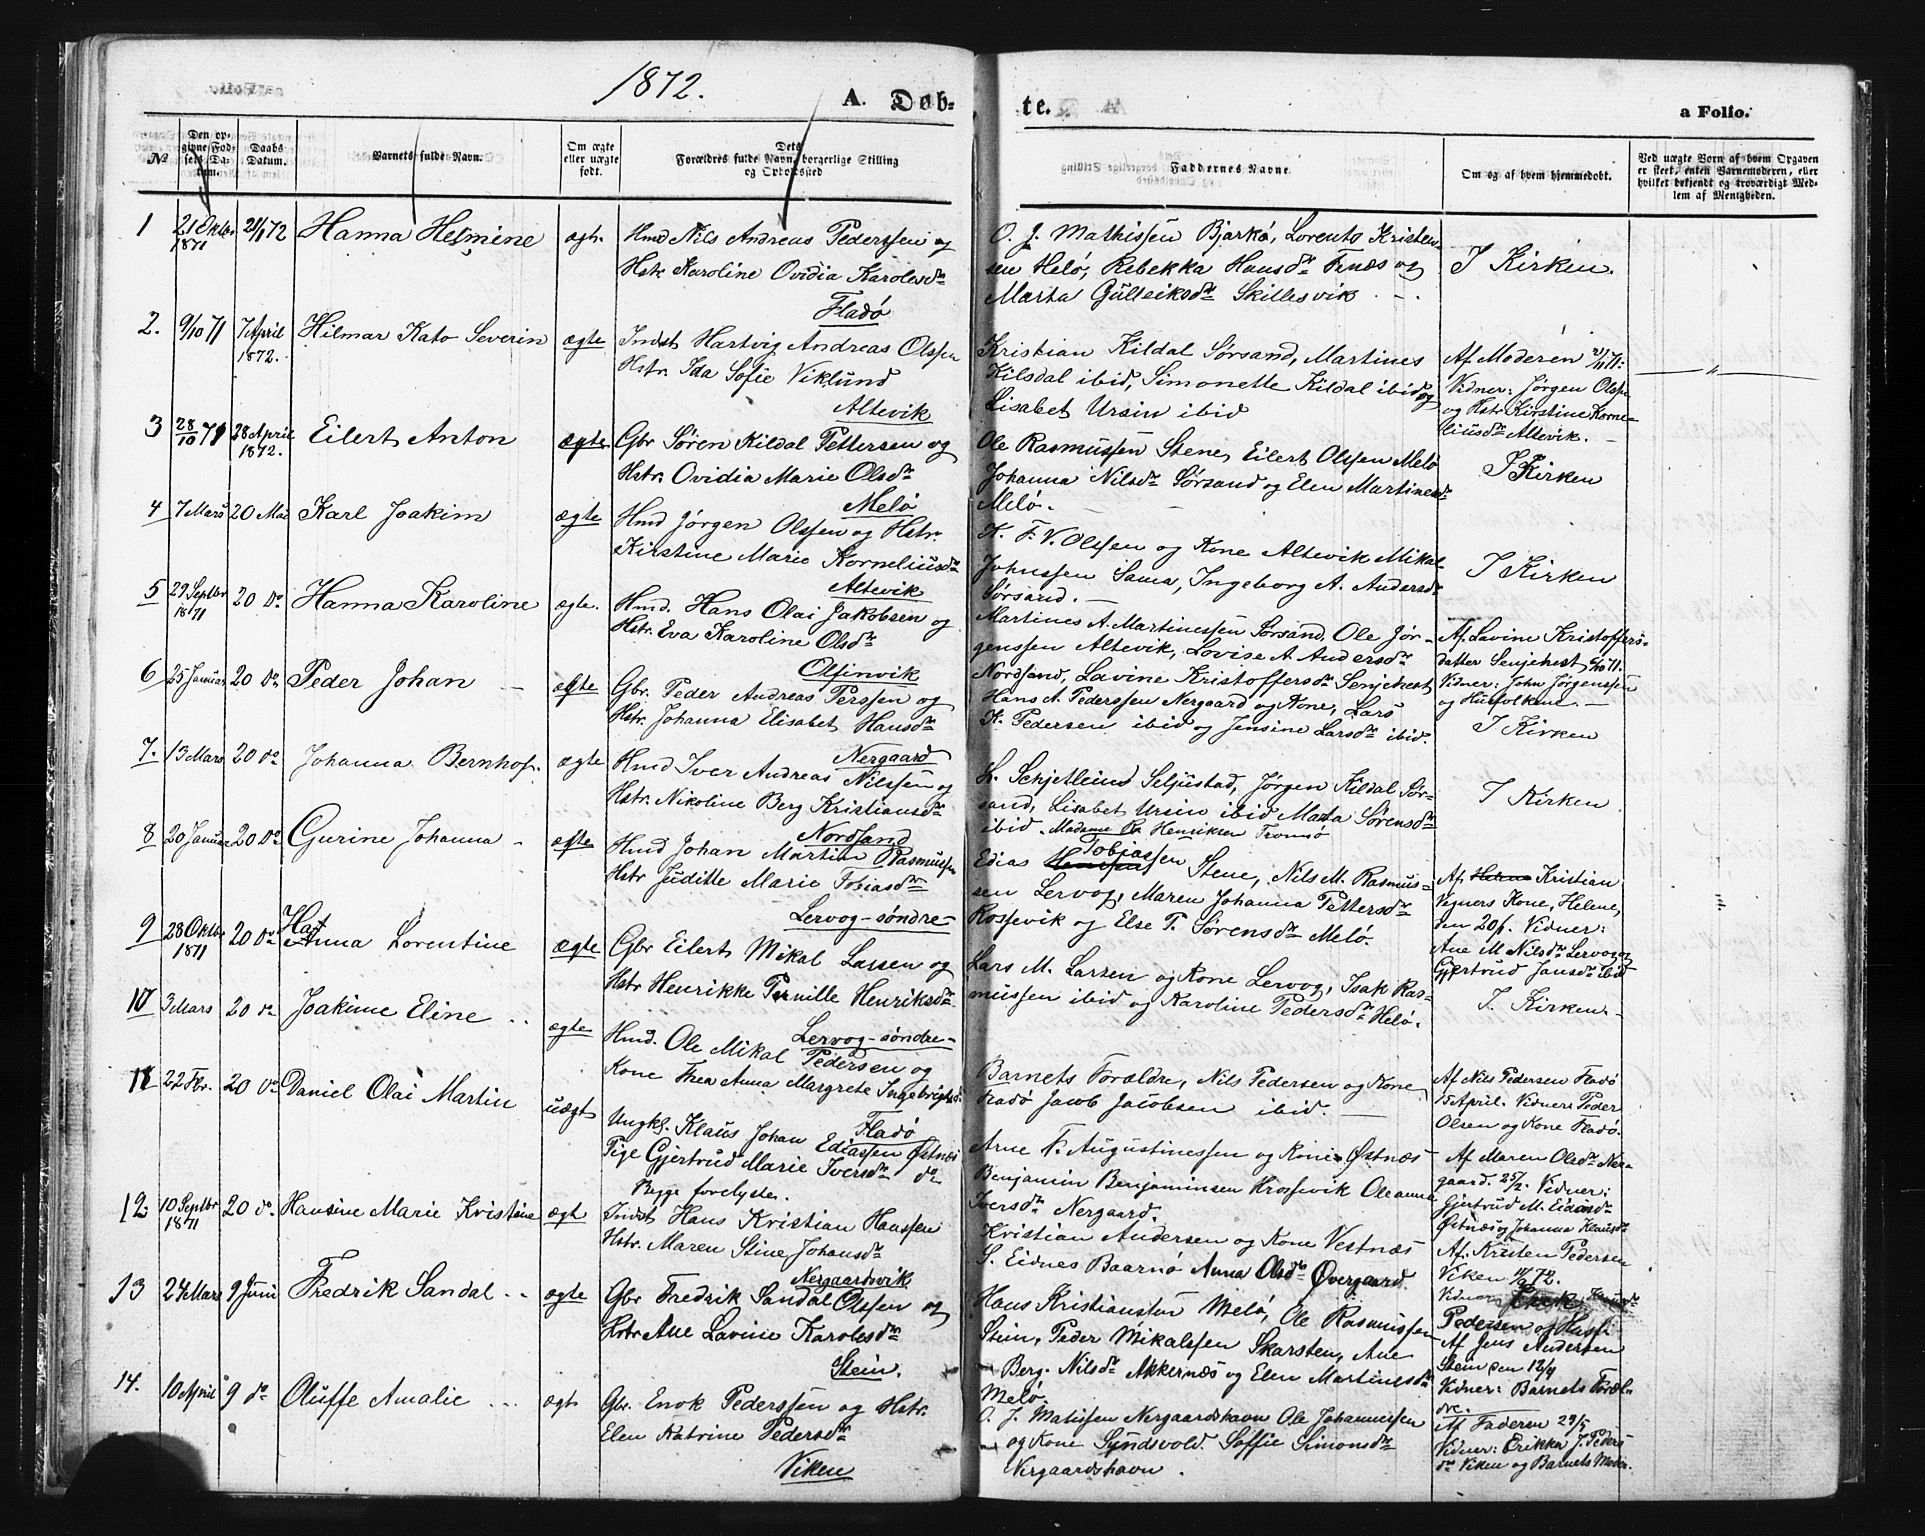 1872.
A. Døb-
te.
a Folio.
№
Den op-
givne Fød-
sels Da-
tum.
Daabs
Datum.
Barnets fulde Navn.
Om ægte
eller uægte
født.
Dets
Forældres fulde Navn, borgerlige Stilling
og Opholdssted
Faddernes Navne.
Om og af hvem hjemmedøbt.
Ved uægte Born af hvem Opgaven
er skeet, enten Barnemoderen, eller
hvilket bekjendt og troværdigt Med-
lem af Menigheden.
1
21 Oktbr
1871
21/1 72
Hanna Helmine
ægte
Hmd Nils Andreas Pederssen og
Hstr Karoline Ovidia Karolesdr
Fladø
O. J. Mathissen Bjarkø, Lorents Kristen-
sen Helø, Rebekka Hansdr Fenæs og
Marta Gulleiksdr Skillesvik
I Kirken.
2.
9/10 71
7 April
1872.
Hilmar Kato Severin
ægte
Indst Hartvig Andreas Olssen
Hstr. Ida Sofie Viklund
Altevik
Kristian Kildal Sørsand, Martines
Kilsdal ibid, Simonette Kildal ibid og
Lisabet Ursin ibid
Af Moderen 21/11 71.
Vidner: Jørgen Olsen
og Hstr Kirstine Korne-
liusdr Altevik.
3
28/10 71
28 April
1872.
Eilert Anton
ægte
Gbr Søren Kildal Pettersen og
Hstr. Ovidia Marie Olsdr
Melø
Ole Rasmussen Stene, Eilert Olssen Melø
Johanna Nilsdr Sørsand og Elen Martinesdr
Melø.
I Kirken
4
7 Mars
20 Mai
Karl Joakim
ægte
Hmd Jørgen Olssen og Hstr.
Kirstine Marie Korneliusdr
Altevik
K. F. V. Olssen og Kone Altevik Mikal
Johnssen Sama, Ingeborg A. Andersdr
Sørsand.
I Kirken
5
29 Septbr
1871
20 do
Hanna Karoline
ægte.
Hmd. Hans Olai Jakobsen og
Hstr. Eva Karoline Olsdr
Olfinvik
Martines A. Martinessen Sørsand, Ole Jør-
genssen Altevik, Lovise A. Andersdr
Nordsand, Lavine Kristoffersdr Senjehest
Af Lavine Kristoffers-
datter Senjehest 6/10 71.
Vidner: John Jørgenssen
og Husfolkene.
6
25 Januar
20 do
Peder Johan
ægte
Gbr. Peder Andreas Perssen og
Hstr. Johanna Elisabet Hansdr
Nergaard
Hans A. Pederssen Nergaard og Kone, Lars
K. Pedersen ibid og Jensine Larsdr ibid.
I Kirken
7.
13 Mars
20 do
Johanna Bernhof.
ægte
Hmd Iver Andreas Nilssen og
Hstr. Nikoline Berg Kristiansdr
Nordsand
L. Schjetleind Seljestad, Jørgen Kildal Sør-
sand, Lisabet Ursin ibid Marta Sørensdr
ibid. Madame Henriksen Tromsø
I Kirken
8
20 Januar
20 do
Gurine Johanna
ægte
Hmd Johan Martin Rasmussen
Hstr Juditte Marie Tobiasdr
Lervog-søndre
Edias Tobiassen Stene, Nils M. Rasmus-
sen Lervog, Maren Johanna Pettersdr
Rossevik og Else P. Sørensdr Melø.
Af Kristian
Vegners Kone, Helene,
den 20/1. Vidner:
Ane M. Nilsdr Lervog og
Gjertrud Jansdr ibid
9
28 Oktbr
1871
20 do
Anna Lorentine
ægte
Gbr Eilert Mikal Larsen og
Hstr Henrikke Pernille Henriksdr
Lervog-søndre
Lars M. Larsen og Kone Lervog, Isak Ras-
mussen ibid og Karoline Pedersdr Helø.
I. Kirken
10
3 Mars
20 do
Joakime Eline
ægte
Hmd. Ole Mikal Pedersen og
Kone Thea Anna Margrete Ingebrigtsd.
Fladø
Barnets Forældre, Nils Pedersen og Kone
Fladø Jacob Jacobsen ibid.
Af Nils Pedersen Fladø
15 April. Vidner: Peder
Olsen og Kone Fladø.
11
22 Fbr.
20 do
Daniel Olai Martin
uægt
Ungk. Klaus Johan Ediassen Østnæs
Pige Gjertrud Marie Iversdr do
Begge forelyste.
Arne F. Augustinessen og Kone Østnæs
Benjamin Benjaminsen Krossevik Oleanna
Iversdr Nergaard.
Af Maren Olsdr Ner-
gaard. 25/2. Vidner:
Gjertrud M. Eidisdr
Østnæs og Johanna Klausdr
12
10 Septbr
1871
20 do
Hansine Marie Kristine
ægt
Indst Hans Kristian Hanssen
Hstr. Maren Stine Johansdr
Nergaardsvik
Kristian Andersen og Kone Vestnæs
S. Eidnes Baarnø Anna Olsdr Øvergaard
Af. Kristen Pedersen
Viken 72.
Vidner
Pedersen og
13
24 Mars
9 Juni
Fredrik Sandal
ægte
Gbr Fredrik Sandal Olssen og
Hstr Ane Lavine Karolesdr
Stein.
Hans Kristianssen Melø, Ole Rasmussen
Stein, Peder Mikalssen Skarsten, Ane
Berg. Nilsdr Akkernæs og Elen Martinesdr
Melø
Af Jens Andersen
Stein den 12/4
Vidner: Barnets Foræl-
dre.
14.
10 April
9 do
Oluffe Amalie
ægt
Gbr. Enok Pederssen og Hstr.
Elen Katrine Pedersdr
Viken
O. J. Matissen Nergaardshavn Ole Johannessen
og Kone Syndsvold. Soffie Simonsdr
Nergaardshavn.
Af Faderen 29/5
Vidner: Erikka J. Peders
dr Viken og Barnets Moder.